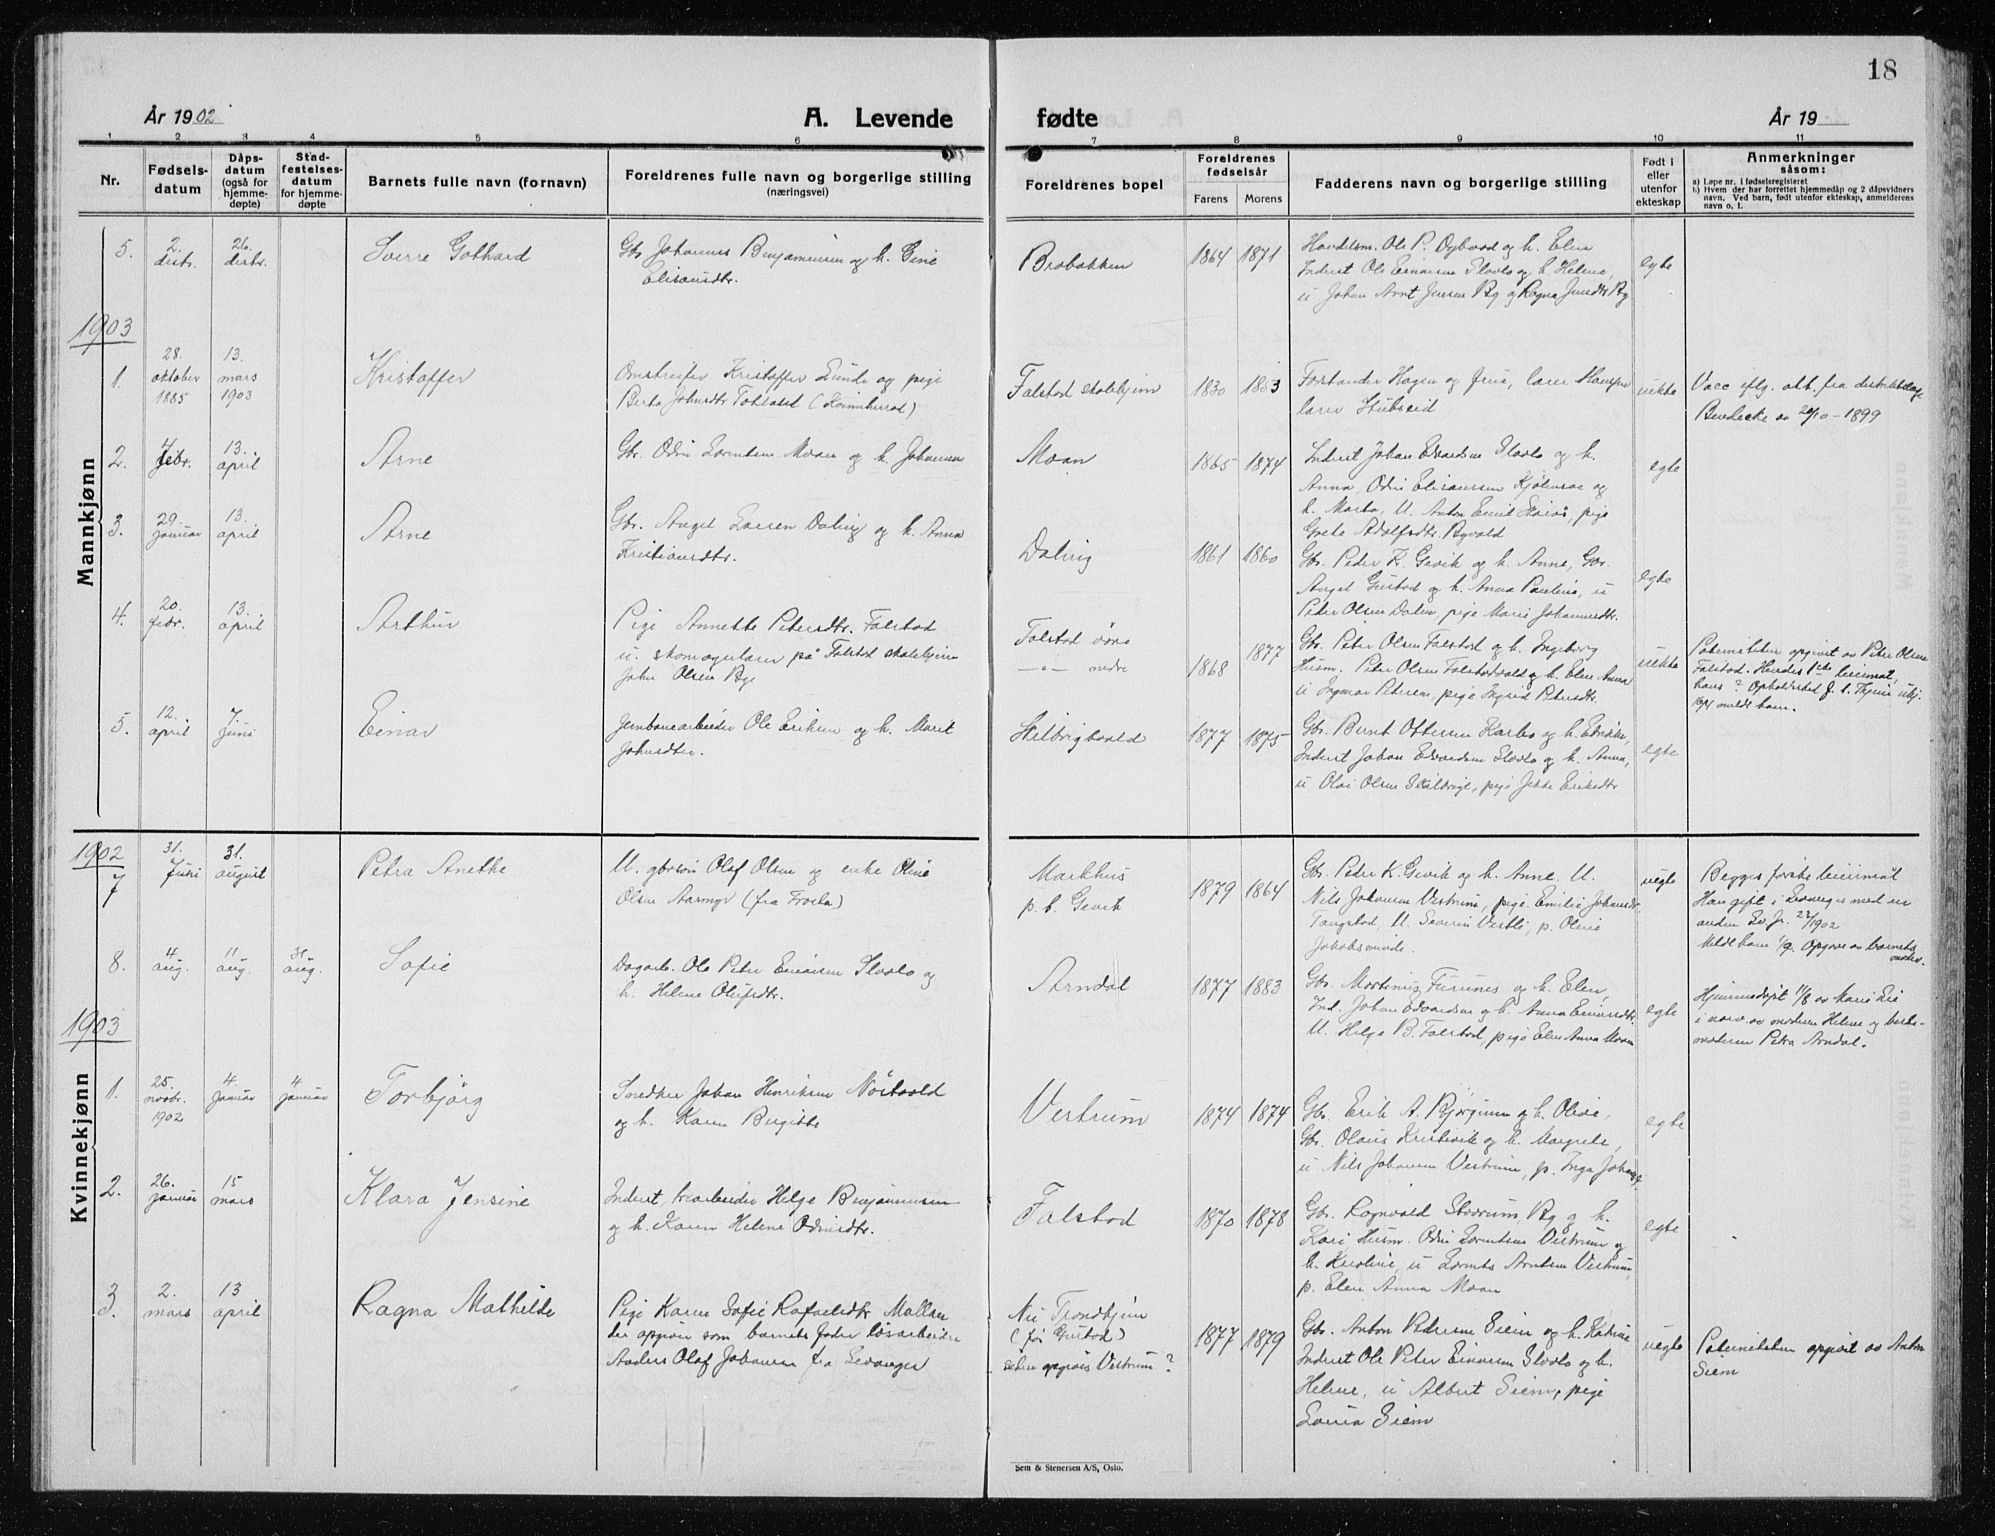 18
År 1902
A. Levende
fødte
År 19
1 2 3 4 5 6 7 8 9 10 11
Nr.
Fødsels-
datum
Dåps-
datum
(også for
hjemme-
døpte)
Stad-
festelses-
datum
for hjemme-
døpte
Barnets fulle navn (fornavn)
Foreldrenes fulle navn og borgerlige stilling
(næringsvei)
Foreldrenes bopel
Foreldrenes
fødselsår
Farens
Morens
Fadderens navn og borgerlige stilling
Født i
eller
utenfor
ekteskap
Anmerkninger
såsom:
a) Løpe nr. i fødselsregisteret
b) Hvem der har forrettet hjemmedåp og 2 dåpsvidners
navn. Ved barn, født utenfor ekteskap, anmelderens
navn o. l.
Mannkjønn
5.
2.
desbr.
26.
desbr.
Sverre Gothard
Gbr. Johannes Benjaminsen og h. Gine
Eliseusdtr.
Brobakken
1864
1871
Handelsm. Ole P. Oybvad og h. Elen
Inderst Ole Einarsen Slovlo og h. Helene,
u Johan Arnt Jensen By og Ragna Jensdtr By
egte
1903
1.
28.
oktober
1885
13.
mars
1903
Kristoffer
Omstreifer Kristoffer Lunde og pige
Berta Johnsdtr Totland
Falstad skolehjem
1830
1853
Forstander Hagen og frue, lærer
lærer
uekte
Vacc eflg. att. fra distriktslæge
20/10 - 1899
2.
4
febr.
13.
april
Arne
Gbr. Odin Lorentsen Moan og h. Johanna
Moan
1865
1874
Inderst Johan Edvardsen Slovlo og h.
Anna, Odin Eliseussen og
h. Marta, U. Anton Emil pige
Grete Adolfsdtr.
egte
3.
29.
januar
13.
april
Arne
Gbr. Aksel Larsen Daling og h. Anna
Kristiansdtr.
Daling
1861
1860
Gbr. Peder K. Gevik og h. Anne, Gbr.
Aksel Gustad og h. Anna Pauline, u
Peter Olsen Dalen, pige Marie Johannesdtr.
egte
4.
20.
febr.
13.
april
Arthur
Pige Annette Petersdtr. Falstad
u. skomagerlærer på Falstad skolehjem
John Olsen Bye
Falstad øvre
—„— nedre
1868
1877
Gbr. Peter Olsen Falstad og h. Ingeborg
Husm. Peter Olsen Falstadvald og h. Elen Anna
u Ingvar Petersen, pige Ingrid Petersdtr.
uekte
Paterniteten opgivet av Peter Olsen
Falstad. Hendes 1ste leiermaal,
hans ?
5.
12.
april
7
juni
Einar
Jernbanearbeider Ole Eriksen og h. Marit
Johnsdtr.
1877
1875
Gbr. Bernt Ottersen Karbo og h.
Inderst Johan Edvardsen Slovlo og h. Anna,
u Olai Olsen Skilbrigt, pige Eriksdtr
egte
Kvinnekjønn
1902
7
31.
Juni
31.
august
Petra Anethe
U. gbrsøn Olaf Olsen og enke Oline
Olsen Aarmyr (fra Frosta)
Markhus
p. b. Gevik
1879
1864
Gbr. Peder K. Gevik og h. Anne. U.
Nils Johansen Vestrum, pige Emilie Johansdtr.
Tangstad, U. Severin p. Oline
uegte
Begges første leiermaal
Han gift i Levanger med en
anden
8.
4
aug.
11
aug.
31
aug.
Sofie
Dagarb. Ole Peter Einarsen Slovlo og
h. Helene Olufsdtr.
Arndal
1877
1883
Gbr. Morten Furunes og h. Elen,
Ind. Johan Edvardsen og h. Anna Einarsdtr.
U. Helge B. Falstad, pige Elen Anna Moan
egte
Hjemmedøpt 11/8 av Marie Lie
i nærv. av moderen Helene og beste-
moderen Petra Arndal.
1903
1.
25.
novbr.
1902
4.
januar
4
januar
Torbjørg
Snedker Johan Henriksen Nøstvold
og h. Karen Bergitte
Vestrum
1874
1874
Gbr. Erik A. Bjørginen og h. Olive,
Gbr. Olaus Kristivik og h. Margrete,
u Nils Johansen Vestrum, p. Inga
egte
2.
26.
januar
15
mars
Klara Jensine
Inderst, træarbeider Helge Benjaminsen
og h. Karen Helene Odinsdtr.
Falstad
1870
1878
Gbr. Ragnvald Stavrum, By og h.
Kari Husm. Odin Lorentsen Vestrum og
h. Karoline, u Lorents Arntsen Vestrum,
p. Elen Anna Moan
egte
3.
2.
mars
13
april
Ragna Mathilde
Pige Karen Sofie Rafaelsdtr Mallan
der opgiver som barnets fader løsarbeider
Anders Olaf Johansen fra Levanger
Nu Trondhjem
(før Gustad)
siden opgives Vestrum?
1877
1879
Gbr. Anton Pedersen Siem og h. Katrine
Inderst Ole Peter Einarsen Slovlo og h.
Helene, u Albert Siem, pige
Lovisa Siem
uegte
Paterniteten opgivet av Anton
Siem
Sem & Stenersen A/S, Oslo.